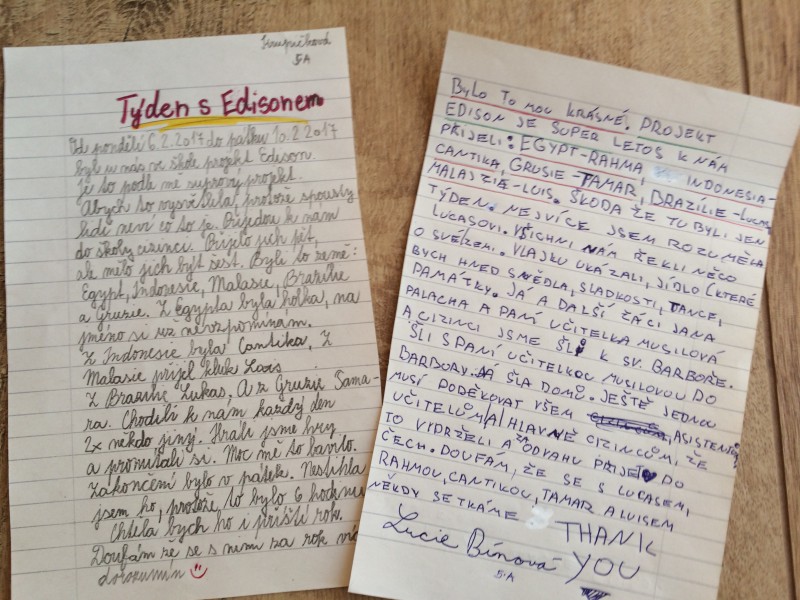 5A
Týden s Edisonem
Od pondělí 6.2.2017 do pátku 10.2.2017
byl u nás ve škole projekt Edison.
Je to podle mě suprový projekt.
Abych to vysvětlila, protože spousty
lidí neví co to je. Přijedou k nám
do školy cizinci. Přijelo jich pět,
ale mělo jich být šest. Byli to země:
Egypt, Indonesie, Malasie, Brazílie
a Grusie. Z Egypta byla holka, na
jméno si už nevzpomínám.
Z Indonesie byla Cantika, Z
Malasie přijel kluk Lois
Z Brazílie Lukas, A z Grusie Tama-
ra. Chodili k nám každý den
2x někdo jiný. Hráli jsme hry
a promítali si. Moc mě to bavilo.
Zakončení bylo v pátek. Nestihla
jsem ho, protože to bylo 6 hodinu
Chtěla bych ho i příští rok.
Doufám že se s nimi za rok víc
dorozumím
BYLO TO MOC KRÁSNÉ. PROJEKT
EDISON JE SUPER LETOS K NÁM
PŘIJELI: EGYPT-RAHMA, INDONESIA-
CANTIKA, GRUSIE-TAMAR, BRAZÍLIE-LUCAS,
MALAJZIE-LUIS. ŠKODA ŽE TU BYLI JEN
TÝDEN. NEJVÍCE JSEM ROZUMĚLA
LUCASOVI. VŠICHNI NÁM ŘEKLI NĚCO
O SVÉ ZEMI. VLAJKU UKÁZALI, JÍDLO (KTERÉ
BYCH HNED SNĚDLA, SLADKOSTI, TANCE,
PAMÁTKY. JÁ A DALŠÍ ŽÁCI JANA
PALACHA A PANÍ UČITELKA MUSILOVÁ
A CIZINCI JSME ŠLI K SV. BARBOŘE.
ŠLI S PANÍ UČITELKOU MUSILOVOU DO
BARBORY. JÁ ŠLA DOMŮ. JEŠTĚ JEDNOU
MUSÍ PODĚKOVAT VŠEM ASISTENTŮM
UČITELŮM A HLAVNĚ CIZINCŮM, ŽE
TO VYDRŽELI A ZA ODVAHU PŘIJET DO
ČECH. DOUFÁM, ŽE SE S LUCASEM,
RAHMOU, CANTIKOU, TAMAR A LUISEM
NĚKDY SETKÁME
THANK
YOU
Lucie Bínová
5.A